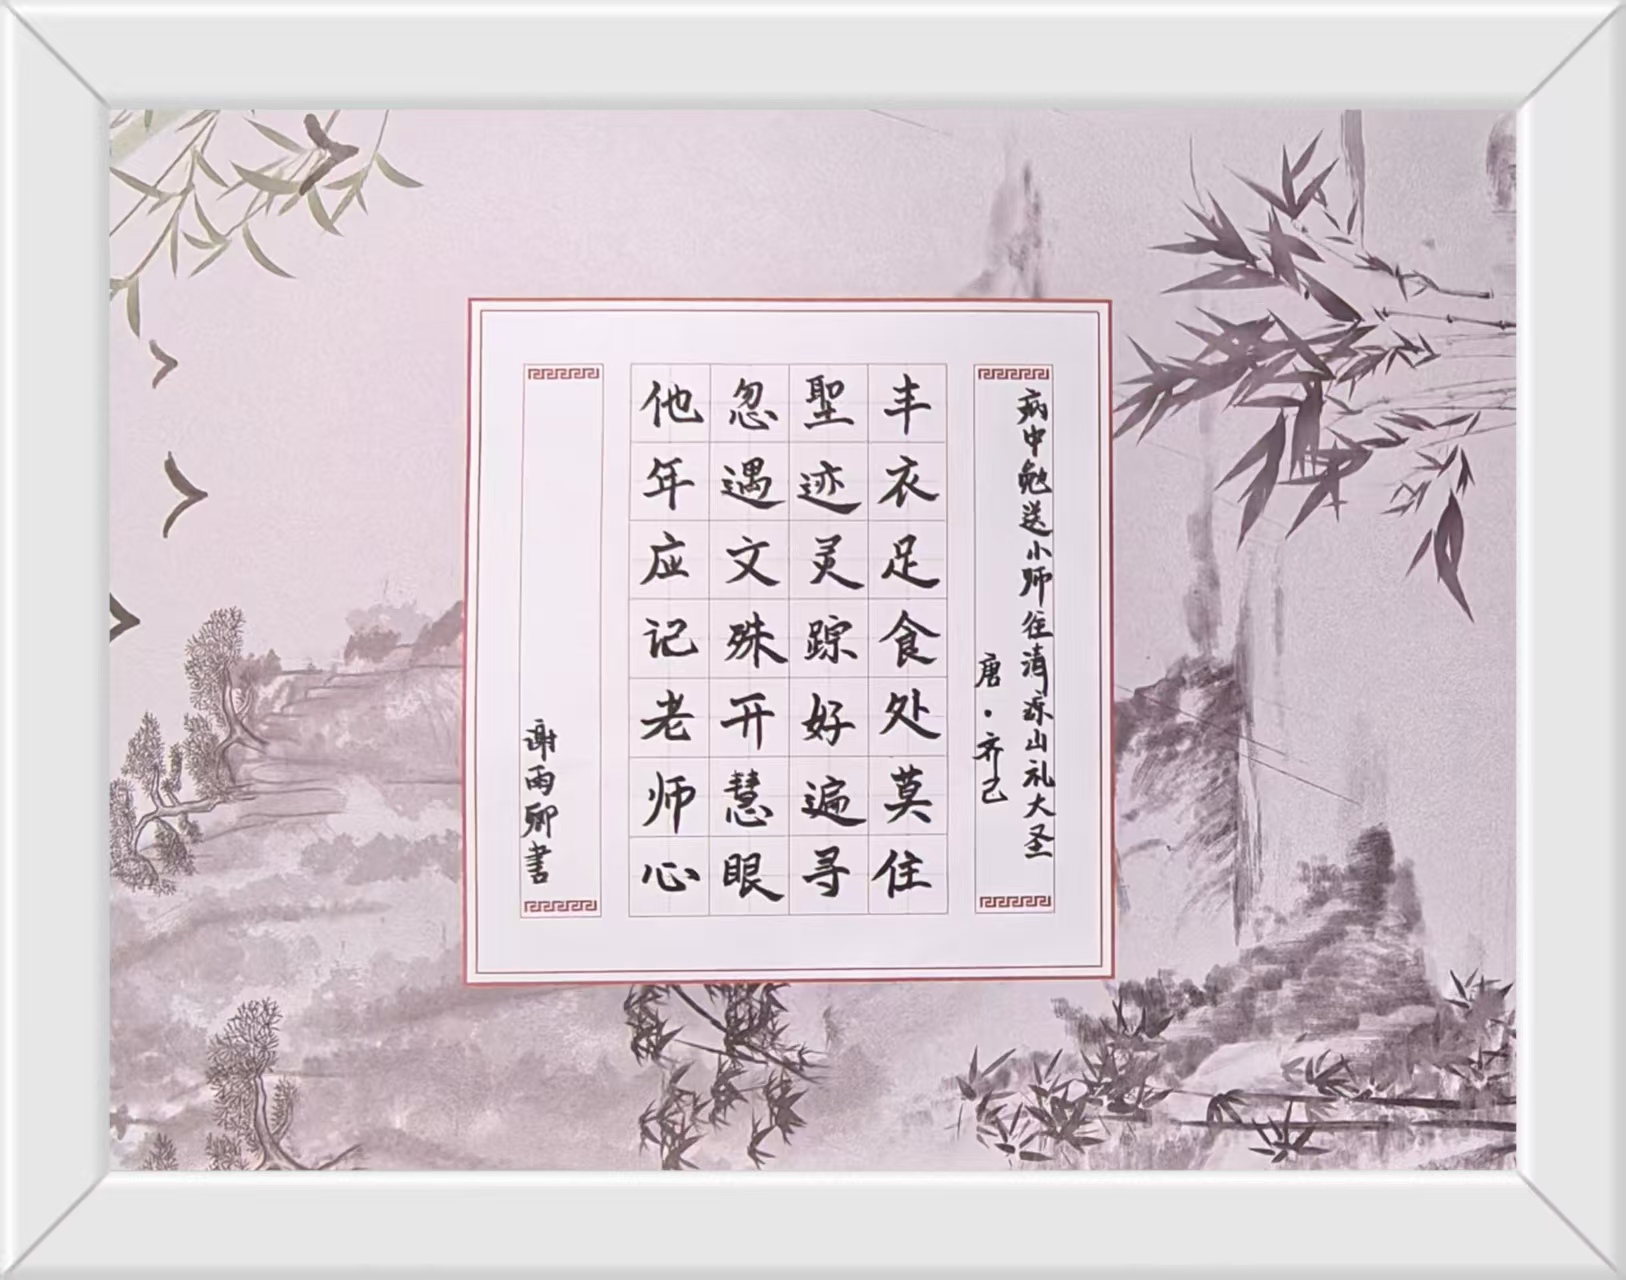 病中勉送小师往清凉山礼大圣
唐·齐己
丰衣足食处莫住
聖迹灵踪好遍寻
忽遇文殊开慧眼
他年应记老师心
谢雨卿書